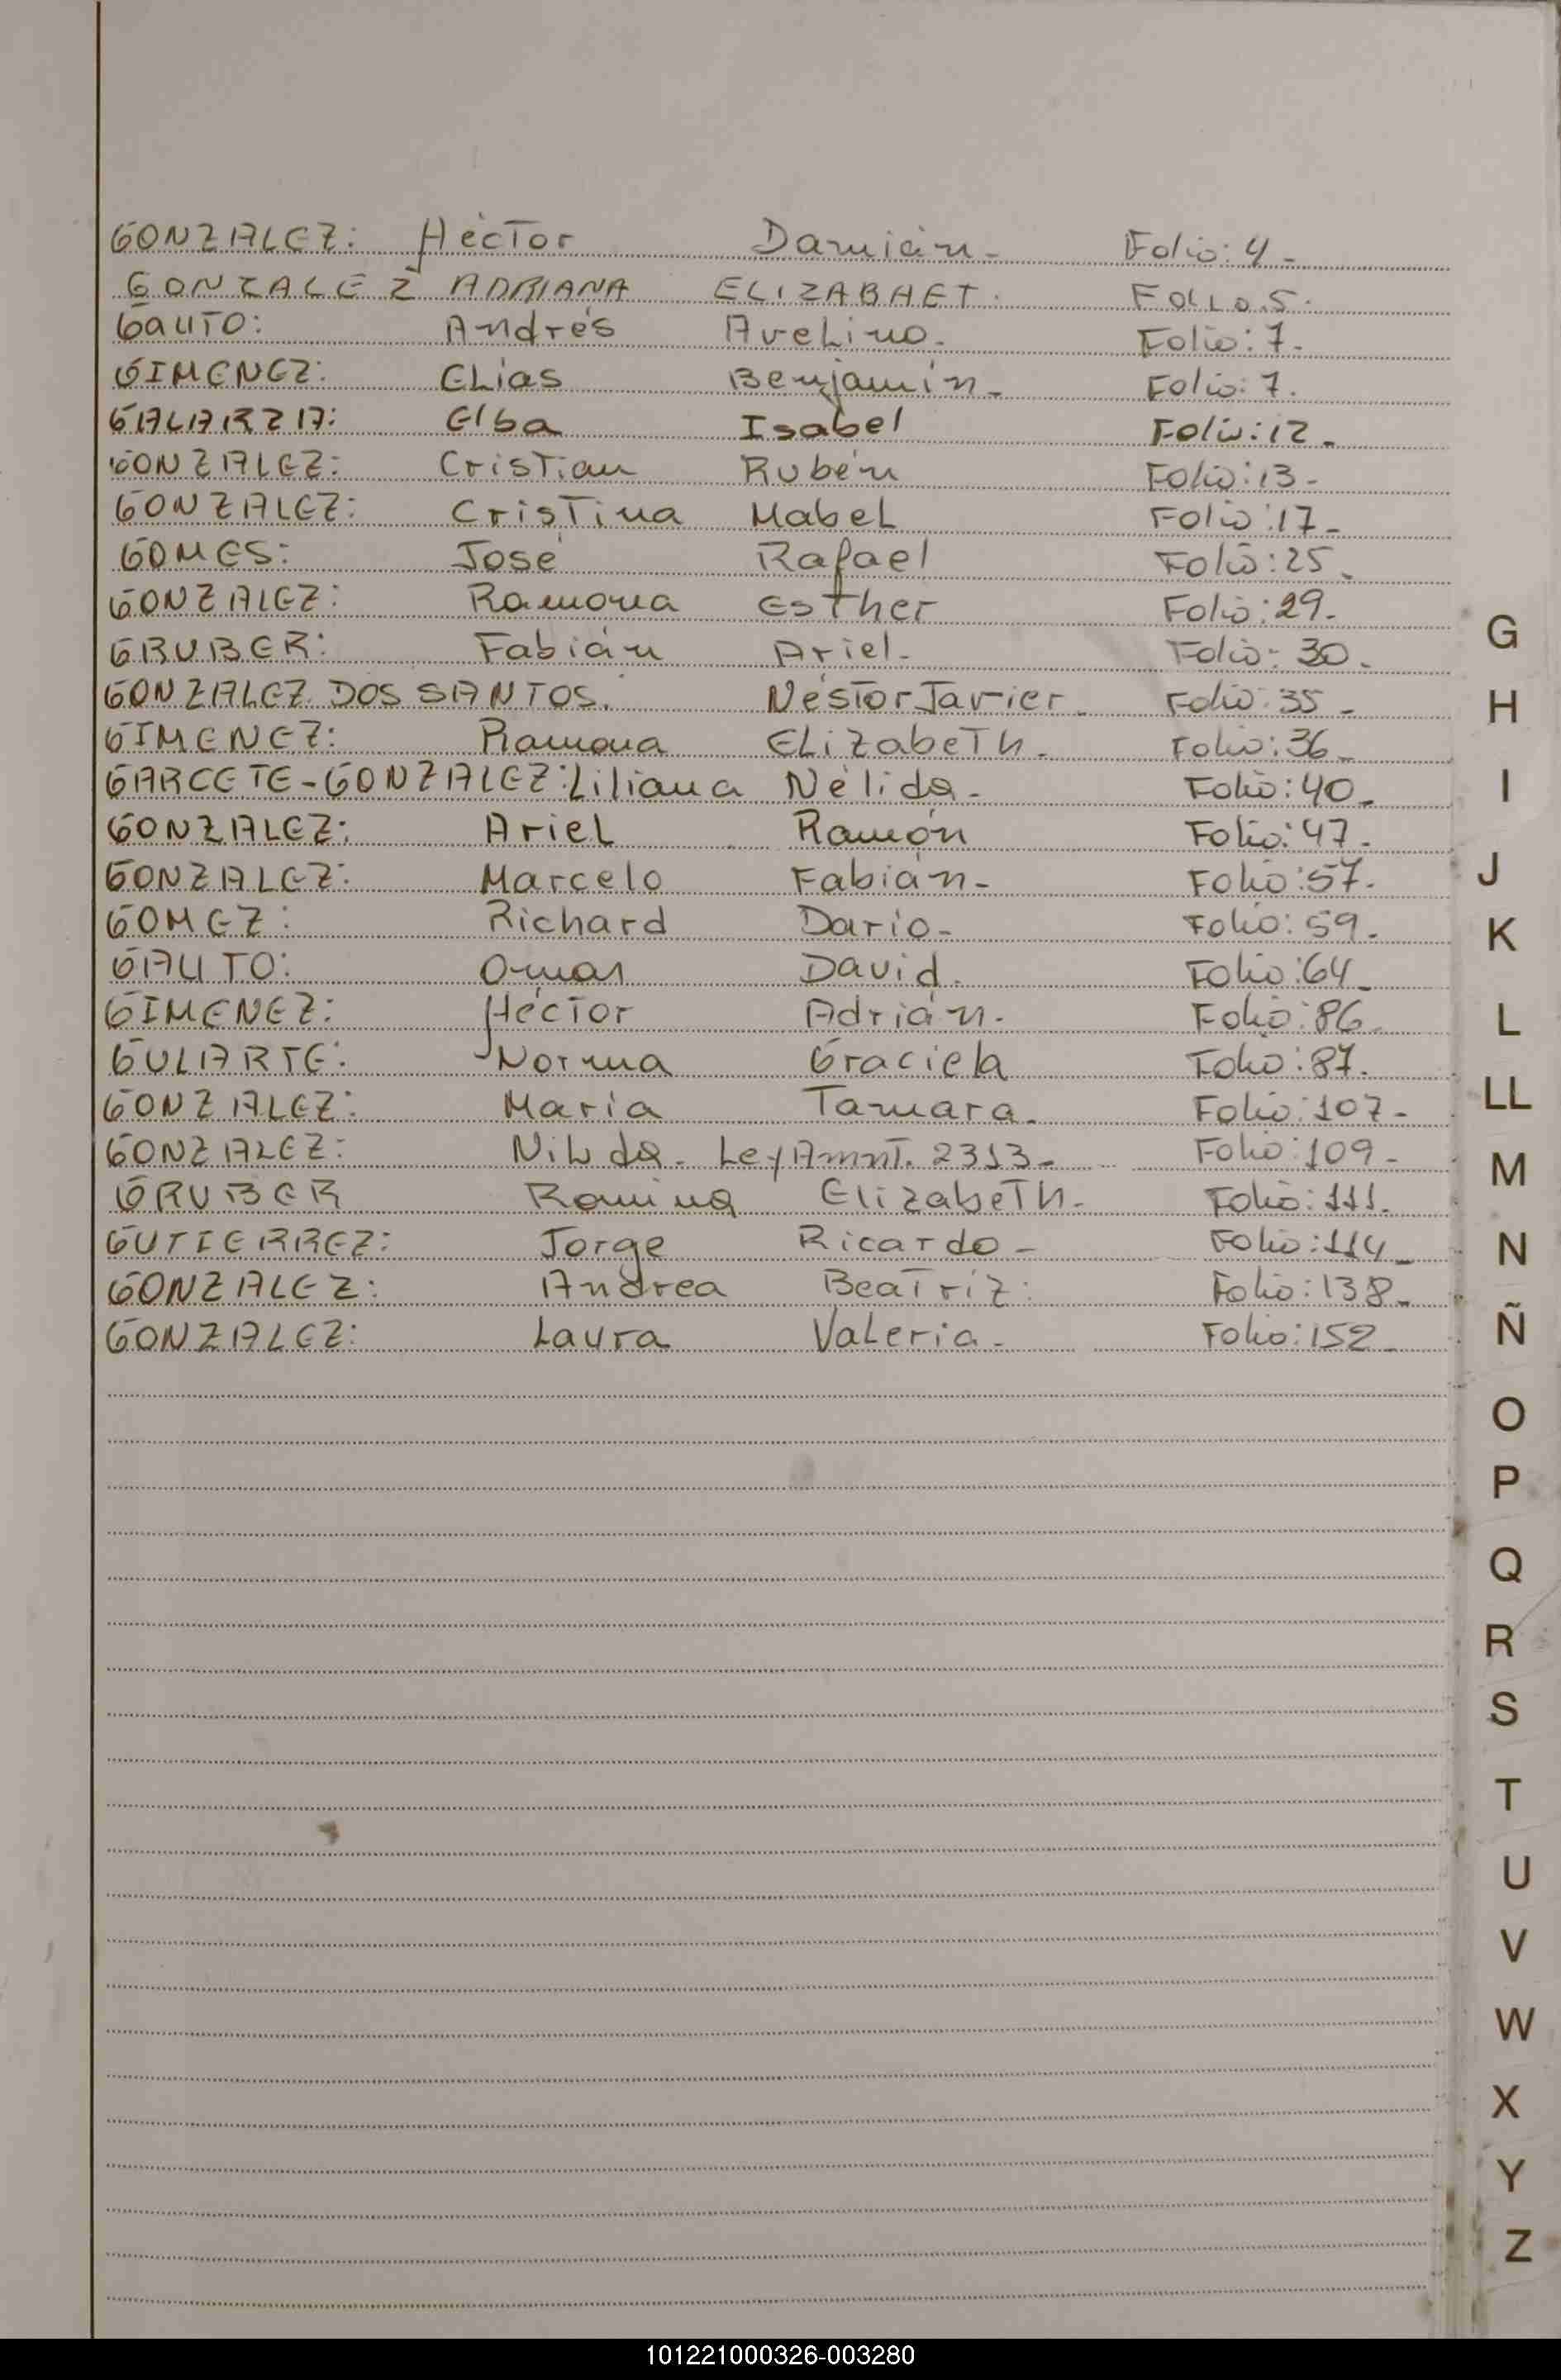 GONZALEZ: Héctor Damián- Folio: 4-
GONZALEZ ADRIANA ELIZABHET. FOLIO.5.
Gauto: Andrés Avelino. Folio: 7.
GIMENEZ: Elias Benjamín- Folio: 7.
GALARZA: Elba Isabel Folio: 12.
GONZALEZ: Cristian Rubén Folio: 13-
GONZALEZ: Cristina Mabel Folio: 17-
GOMES: José Rafael Folio: 25.
GONZALEZ: Ramona Esther Folio: 29-
GRUBER: Fabián Ariel- Folio: 30.
GONZALEZ DOS SANTOS. Néstor Javier- Folio: 35-
GIMENEZ: Ramona Elizabeth- Folio: 36-
GARCETE-GONZALEZ: Liliana Nélida- Folio: 40-
GONZALEZ: Ariel Ramón Folio: 47-
GONZALEZ: Marcelo Fabián- Folio: 57-
GOMEZ: Richard Dario- Folio: 59-
GAUTO: Omar David. Folio: 64-
GIMENEZ: Héctor Adrián- Folio: 86-
GULARTE: Norma Graciela Folio: 87.
GONZALEZ: María Tamara- Folio: 107-
GONZALEZ: Nilda- Ley 2313- Folio: 109-
GRUBER Romina Elizabeth- Folio: 111.
GUTIERREZ: Jorge Ricardo- Folio: 114-
GONZALEZ: Andrea Beatriz: Folio: 138-
GONZALEZ: Laura Valeria- Folio: 152-
G
H
I
J
K
L
LL
M
N
Ñ
O
P
Q
R
S
T
U
V
W
X
Y
Z
101221000326-003280